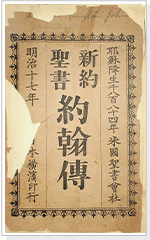 John
耶穌降生千八百八十四年 米國聖書會社
新約
聖書
約翰傳
明治十七年 本横濱印行